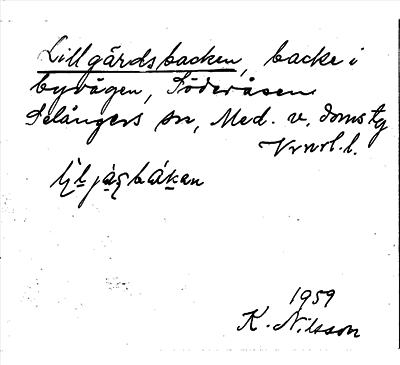 Lillgårdsbacken, backe i
byvägen, Söderåsen
Selångers sn, Med. v. domstg
Vrwrl. l.
1959
K. Nilsson